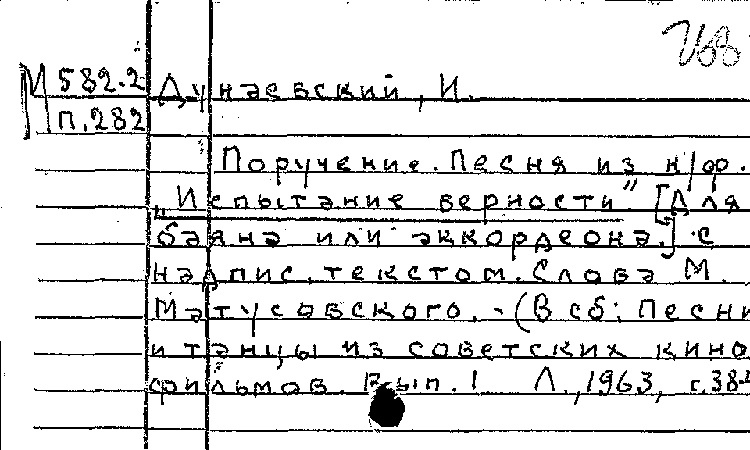 М 582.2 Дунаевский, И.
П.282
Поручение. Песня из н/ф.
„Испытание верности" [Для
баяна или аккордеона.] с
надпис. текстом. Слова М.
Матусовского. - (В сб: Песни
и танцы из советских кино
фильмов. Вып. 1 Л., 1963, с.38-